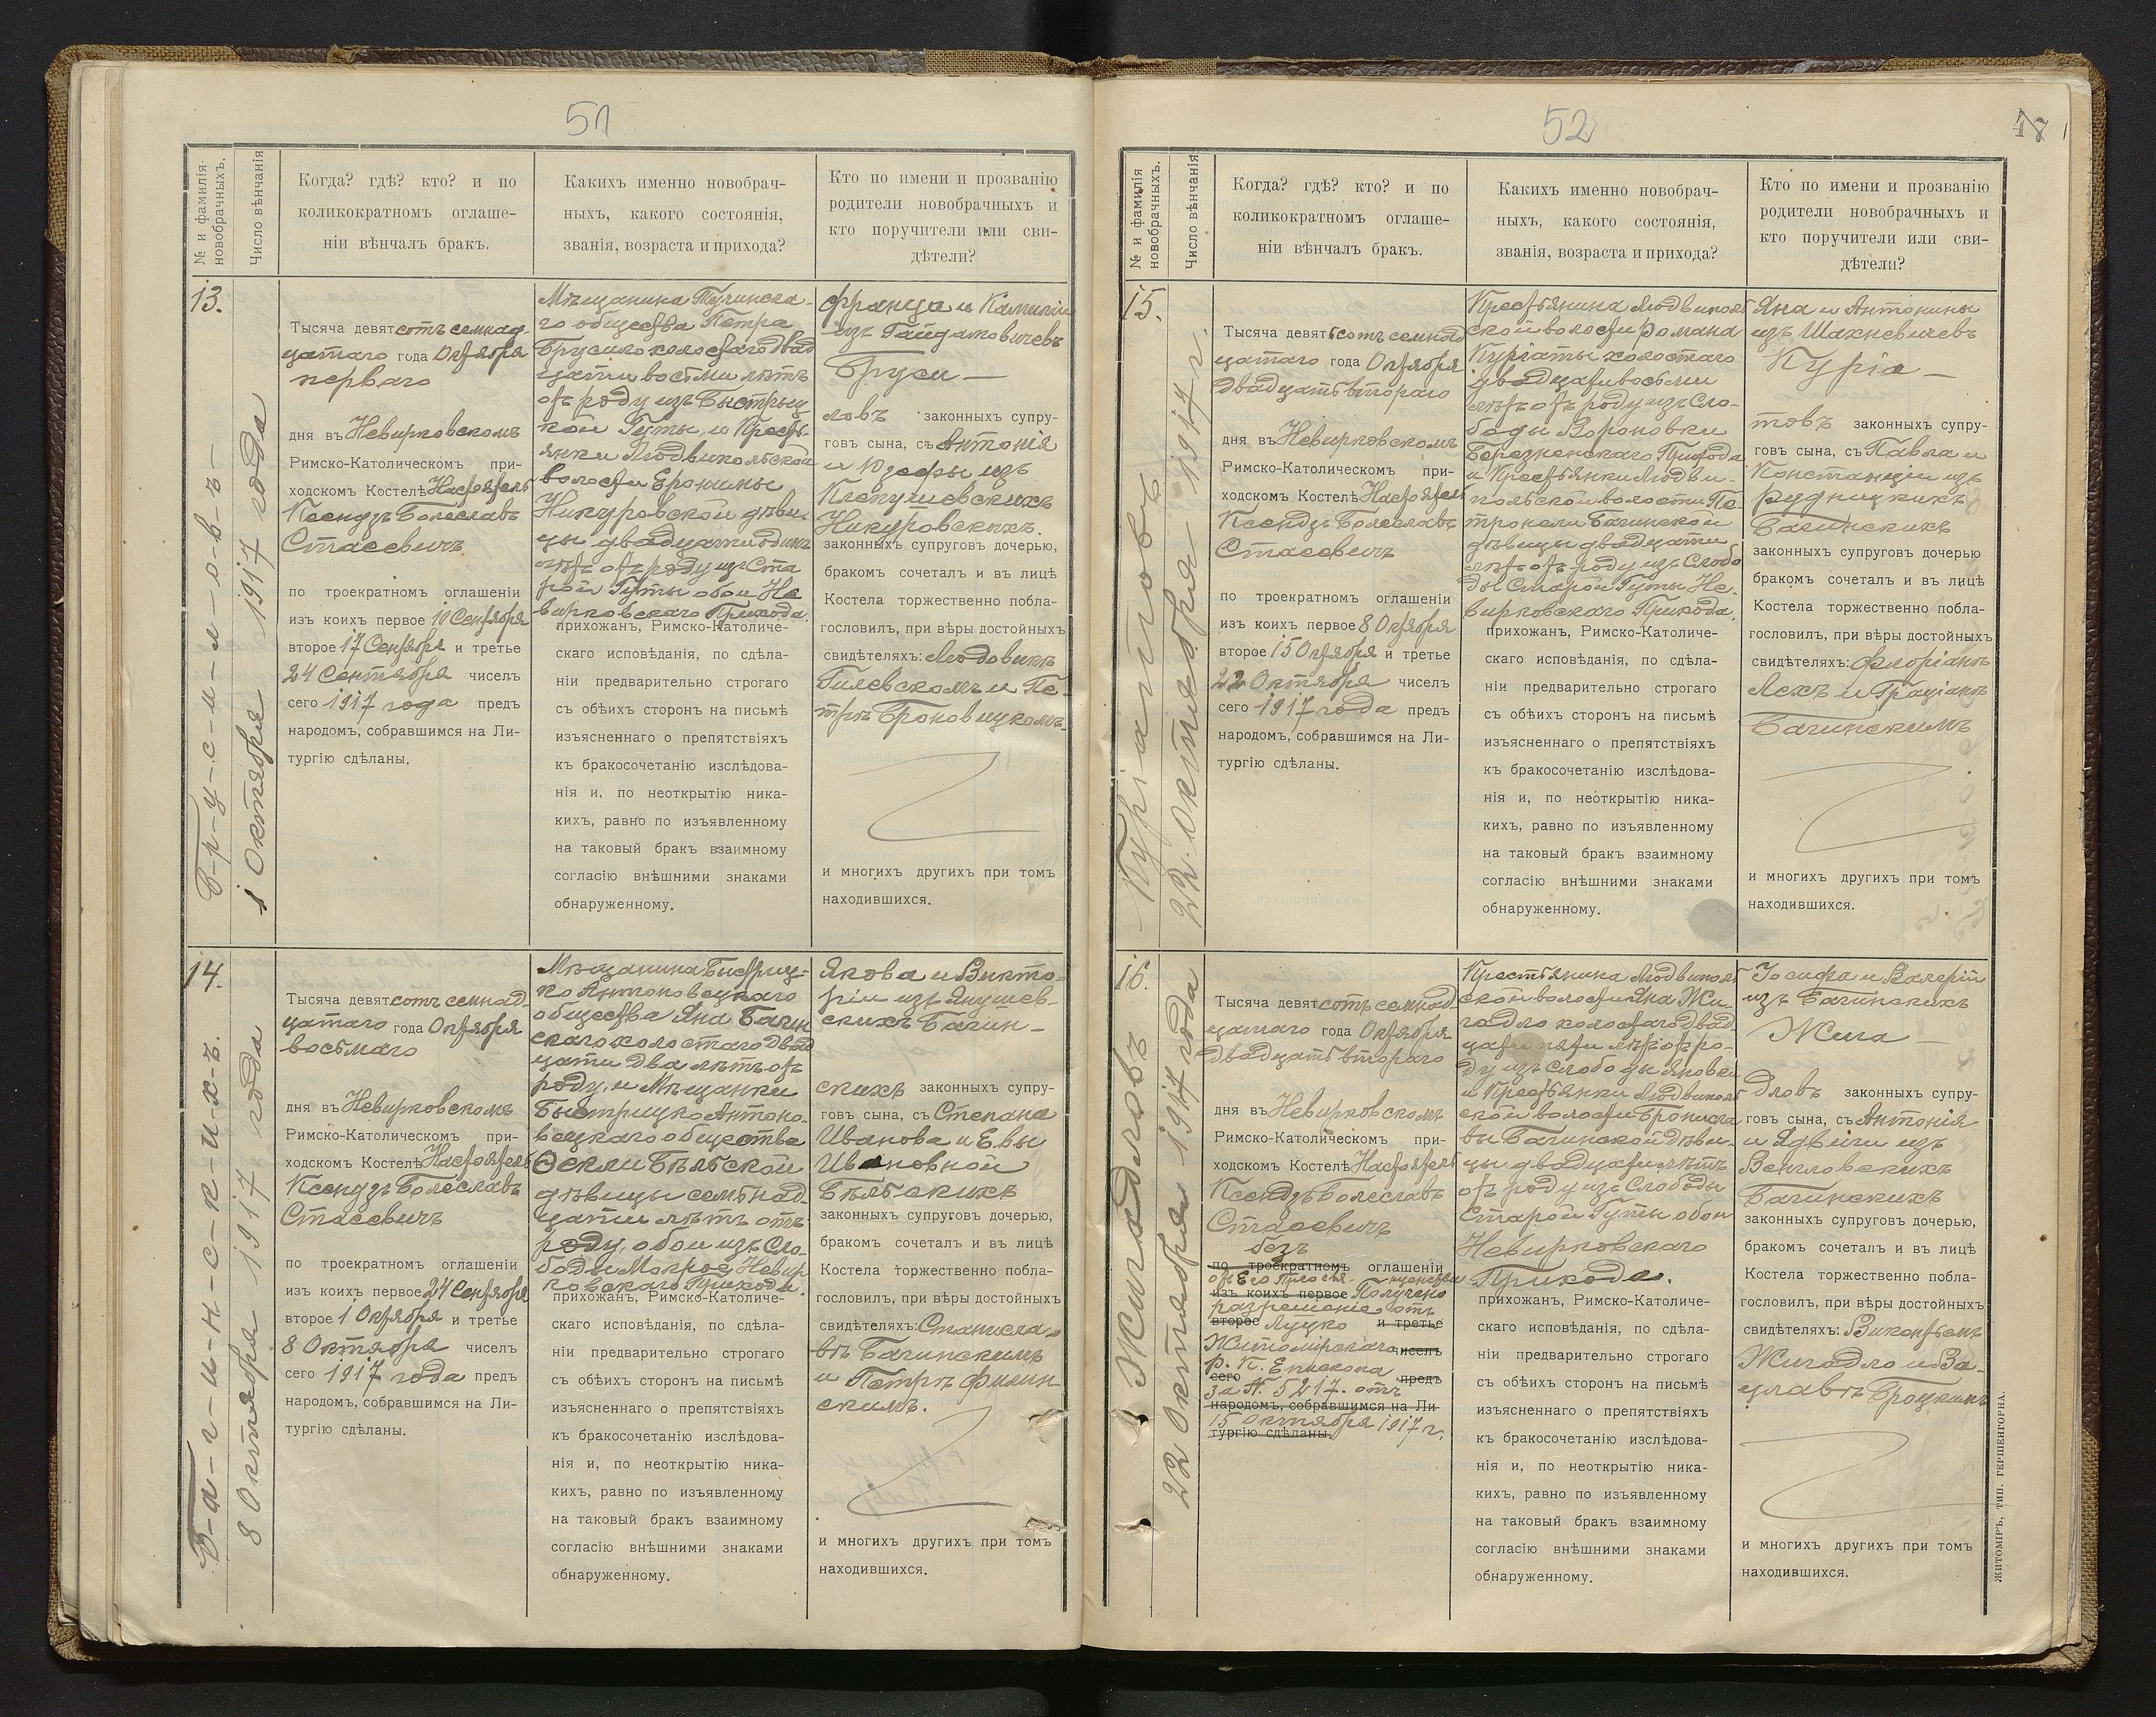 51
№ и фамилія новобрачныхъ.
Число вѣнчанія
Когда? гдѣ? кто? и по
коликократномъ оглаше-
ніи вѣнчалъ бракъ.
Какихъ именно новобрач-
ныхъ, какого состоянія,
званія, возраста и прихода?
Кто по имени и прозванію
родители новобрачныхъ и
кто поручители или сви-
дѣтели?
13.
Б-р-у-с-и-л-о-в-ъ-
1 Октября 1917 года
Тысяча девятсотъ семнад-
цатаго года Октября
перваго
дня въ Невирковскомъ
Римско-Католическомъ при-
ходскомъ Костелѣ Настоятель
Ксендзъ Болеславъ
Стасевичъ
по троекратномъ оглашеніи
изъ коихъ первое 10 Сентября
второе 17 Сентября и третье
24 Сентября чиселъ
сего 1917 года предъ
народомъ, собравшимся на Ли-
тургію сдѣланы.
Мѣщанина Тучинска-
го общества Петра
Брусило холостаго двад
цати восьми лѣтъ
отъ роду изъ Быстрыц
кой Гуты, и Кресть-
янки Людвипольской
волости Еронимы
Никуровской дѣви-
цы двадцати одинъ
лѣтъ отъ роду изъ Ста
рой Гуты обои Не
вирковскаго Прихода.
прихожанъ, Римско-Католиче-
скаго исповѣданія, по сдѣла-
ніи предварительно строгаго
съ обѣихъ сторонъ на письмѣ
изъясненнаго о препятствіяхъ
къ бракосочетанію изслѣдова-
нія и, по неоткрытію ника-
кихъ, равно по изъявленному
на таковый бракъ взаимному
согласію внѣшними знаками
обнаруженному.
Франца и Камиліи
изъ Гайдамовичевъ
Бруси-
ловъ законныхъ супру-
говъ сына, съ Антонія
и Юзефы изъ
Клепушевскихъ
Никуровскихъ.
законныхъ супруговъ дочерью,
бракомъ сочеталъ и въ лицѣ
Костела торжественно побла-
гословилъ, при вѣры достойныхъ
свидѣтеляхъ: Людовикѣ
Гилевскомъ и Пе-
трѣ Броновицкомъ.
и многихъ другихъ при томъ
находившихся.
14.
Б-а-г-и-н-с-к-и-х-ъ.
8 Октября 1917 года
Тысяча девятсотъ семнад-
цатаго года Октября
восьмаго
дня въ Невирковскомъ
Римско-Католическомъ при-
ходскомъ Костелѣ Настоятель
Ксендзъ Болеславъ
Стасевичъ
по троекратномъ оглашеніи
изъ коихъ первое 24 Сентября
второе 1 Октября и третье
8 Октября чиселъ
сего 1917 года предъ
народомъ, собравшимся на Ли-
тургію сдѣланы.
Мѣщанина Быстриц-
ко Антоновецкаго
общества Яна Багин
скаго холостаго двад
цати два лѣтъ отъ
роду, и Мѣщанки
Быстрицко Антоно-
вецкаго общества
Ѳекли Бѣльской
дѣвицы семьнад-
цати лѣтъ отъ
роду, обои изъ Сло-
боды Мокрое Невир
ковскаго Прихода.
прихожанъ, Римско-Католиче-
скаго исповѣданія, по сдѣла-
ніи предварительно строгаго
съ обѣихъ сторонъ на письмѣ
изъясненнаго о препятствіяхъ
къ бракосочетанію изслѣдова-
нія и, по неоткрытію ника-
кихъ, равно по изъявленному
на таковый бракъ взаимному
согласію внѣшними знаками
обнаруженному.
Якова и Викто-
ріи изъ Янушев-
скихъ Багин-
скихъ законныхъ супру-
говъ сына, съ Степана
Иванова и Евы
Ивановной
Бѣльскихъ
законныхъ супруговъ дочерью,
бракомъ сочеталъ и въ лицѣ
Костела торжественно побла-
гословилъ, при вѣры достойныхъ
свидѣтеляхъ: Станисла-
вѣ Багинскимъ
и Петрѣ Филин-
скимъ.
и многихъ другихъ при томъ
находившихся.
52
№ и фамилія новобрачныхъ.
Число вѣнчанія
Когда? гдѣ? кто? и по
коликократномъ оглаше-
ніи вѣнчалъ бракъ.
Какихъ именно новобрач-
ныхъ, какого состоянія,
званія, возраста и прихода?
Кто по имени и прозванію
родители новобрачныхъ и
кто поручители или сви-
дѣтели?
15.
Куріатовъ
22. Октября 1917 г.
Тысяча девятсотъ семнад
цатаго года Октября
двадцать втораго
дня въ Невирковскомъ
Римско-Католическомъ при-
ходскомъ Костелѣ Настоятель
Ксендзъ Болеславъ
Стасевичъ
по троекратномъ оглашеніи
изъ коихъ первое 8 Октября
второе 15 Октября и третье
22 Октября чиселъ
сего 1917 года предъ
народомъ, собравшимся на Ли-
тургію сдѣланы.
Крестьянина Людвиполь
ской волости Романа
Куріаты холостаго
двадцати восьми
лѣтъ отъ роду изъ Сло-
боды Вороновки
Березненскаго Прихода
и Крестьянки Людви-
польской волости Пе-
тронели Багинской
дѣвицы двадцати
лѣтъ отъ роду изъ Слобо
ды Старой Гуты Не-
вирковскаго Прихода.
прихожанъ, Римско-Католиче-
скаго исповѣданія, по сдѣла-
ніи предварительно строгаго
съ обѣихъ сторонъ на письмѣ
изъясненнаго о препятствіяхъ
къ бракосочетанію изслѣдова-
нія и, по неоткрытію ника-
кихъ, равно по изъявленному
на таковый бракъ взаимному
согласію внѣшними знаками
обнаруженному.
Яна и Антонины
изъ Шахневичевъ
Куріа-
товъ законныхъ супру-
говъ сына, съ Павла и
Констанціи изъ
Рудницкихъ
Багинскихъ
законныхъ супруговъ дочерью
бракомъ сочеталъ и въ лицѣ
Костела торжественно побла-
гословилъ, при вѣры достойныхъ
свидѣтеляхъ: Флоріанѣ
Лехъ и Граціанѣ
Багинскимъ
и многихъ другихъ при томъ
находившихся.
16.
Жигадловъ
22 Октября 1917 года
Тысяча девятсотъ семнад-
цатаго года Октября
двадцать втораго
дня въ Невирковскомъ
Римско-Католическомъ при-
ходскомъ Костелѣ Настоятель
Ксендзъ Болеславъ
Стасевичъ
безъ
по троекратномъ оглашеніи
изъ коихъ первое Получено
разрешеніе отъ
второе Луцко и третье
Житомірскаго чиселъ
Р. К. Епископа
сего предъ
за № 5217. отъ
народомъ, собравшимся на Ли
15 Октября 1917 г.
тургію сдѣланы.
Крестьянина Людвиполь
ской волости Яна Жи-
гадло холостаго двад
цати пяти лѣтъ отъ ро-
ду изъ Слободы Яновки
и Крестьянки Людвиполь
ской волости Брониска
вы Багинской дѣви-
цы двадцати лѣтъ
отъ роду изъ Слободы
Старой Гуты обои
Невирковскаго
Прихода.
прихожанъ, Римско-Католиче-
скаго исповѣданія, по сдѣла-
ніи предварительно строгаго
съ обѣихъ сторонъ на письмѣ
изъясненнаго о препятствіяхъ
къ бракосочетанію изслѣдова-
нія и, по неоткрытію ника-
кихъ, равно по изъявленному
на таковый бракъ взаимному
согласію внѣшними знаками
обнаруженному.
Іосифа и Валеріи
изъ Багинскихъ
Жига-
дловъ законныхъ супру-
говъ сына, съ Антонія
и Ядвиги изъ
Венгловскихъ
Багинскихъ
законныхъ супруговъ дочерью,
бракомъ сочеталъ и въ лицѣ
Костела торжественно побла-
гословилъ, при вѣры достойныхъ
свидѣтеляхъ: Викентѣмъ
Жигадло и Ва-
цлавѣ Броцкимъ
и многихъ другихъ при томъ
находившихся.
ЖИТОМІРЪ, ТИП. ГЕРШЕНГОРНА.